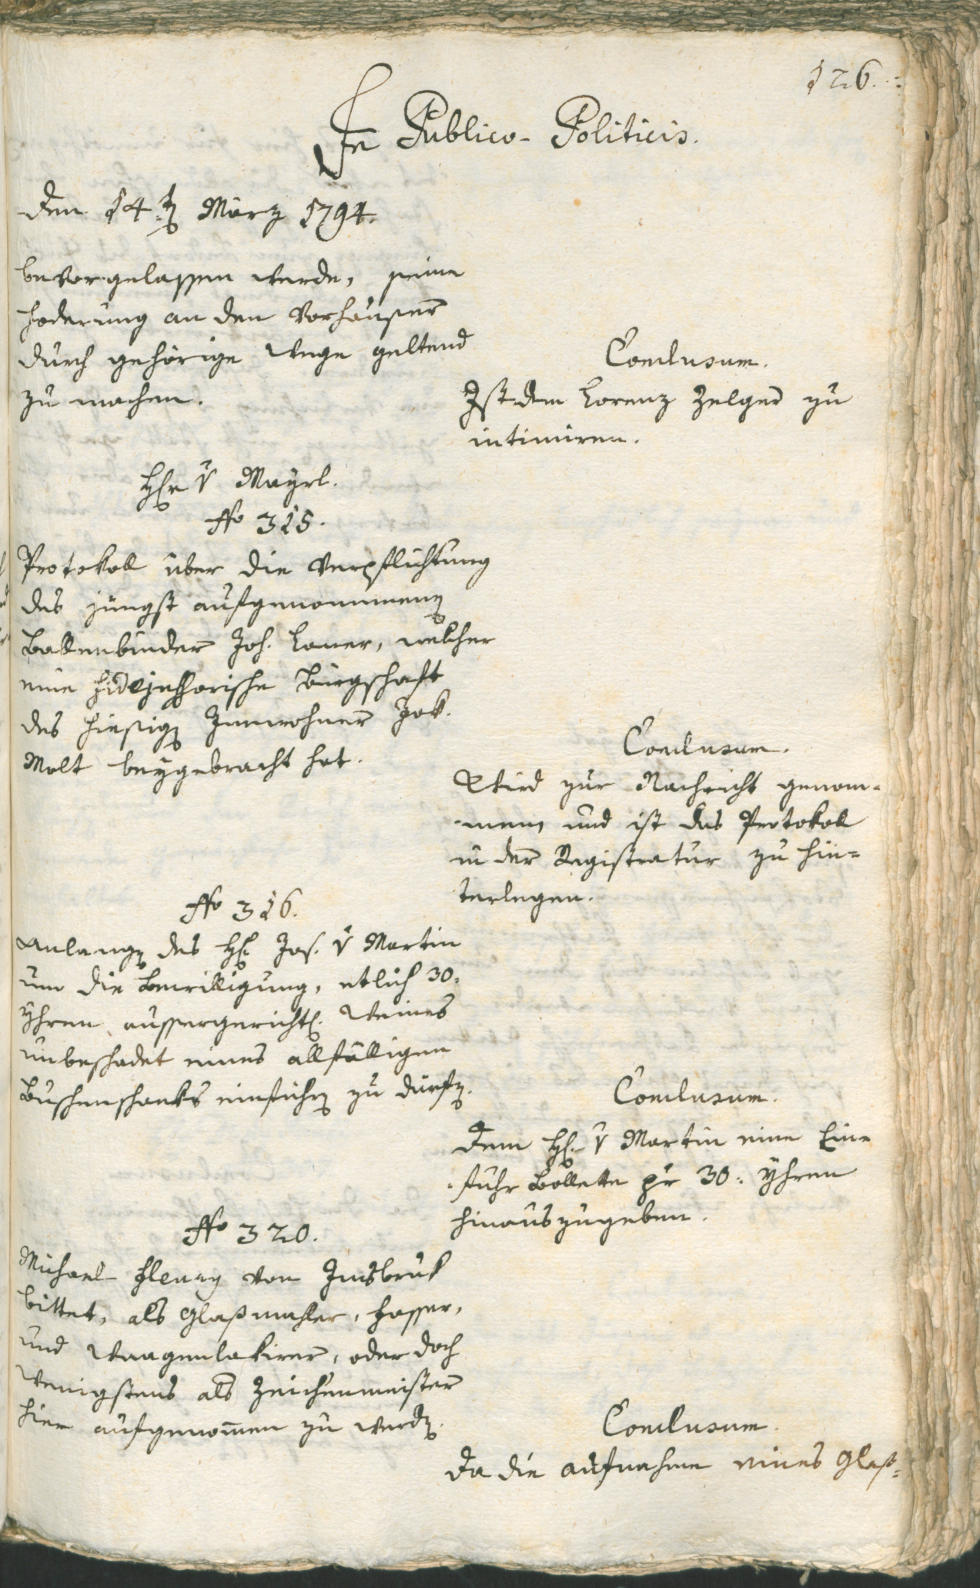 126.
In Publico-Politicis.
Den 14t März 1794.
bevorgelassen werde, seine
Foderung an den Vorhauser
durch gehörige Wege geltend
zu machen.
Conclusum.
Ist dem Lorenz Zelger zu
intimiren.
Hr v Mayrl.
No 315.
Protokoll über die Verpflichtung
des jüngst aufgenommenen
Ballenbinder Joh. Laner, welcher
eine fidejussorische Bürgschaft
des hiesigen Innwohner Jak.
Molt beygebracht hat.
Conclusum.
Wird zur Nachricht genom-
men, und ist das Protokoll
in der Registratur zu hin-
terlegen.
No 316.
Anlangen des H. Jos. v Martin
um die Bewilligung, etlich 30.
Yhren aussergerichtl. Weines
unbeschadet eines allfälligen
Buschenschanks einführen zu dürfen.
Conclusum.
Dem H. v Martin eine Ein-
fuhr Bollette pr 30. Yhren
hinauszugeben.
No 320.
Michael von Insbruk
bittet, als Glaßmahler, Fasser,
und Waagenlakirer, oder doch
wenigstens als Zeichenmeister
hier aufgenommen zu werden.
Conclusum.
Da die Aufnahme eines Glaß-